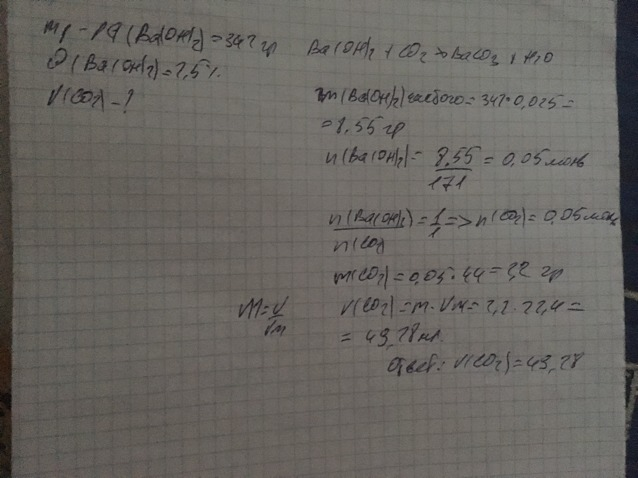 mр-ра (Ba(OH)2) = 342 гр
ω (Ba(OH)2) = 2,5%
V(CO2) - ?
Ba(OH)2 + CO2 → BaCO3 + H2O
m(Ba(OH)2) = 342 · 0,025 =
= 8,55 гр
n(Ba(OH)2) = 8,55/171 = 0,05 моль
n(Ba(OH)2)/n(CO2) = 1/1 => n(CO2) = 0,05 моль
m(CO2) = 0,05 · 44 = 2,2 гр
M = V/Vm
V(CO2) = m · Vm = 2,2 · 22,4 =
= 49,28 мл.
Ответ: V(CO2) = 49,28